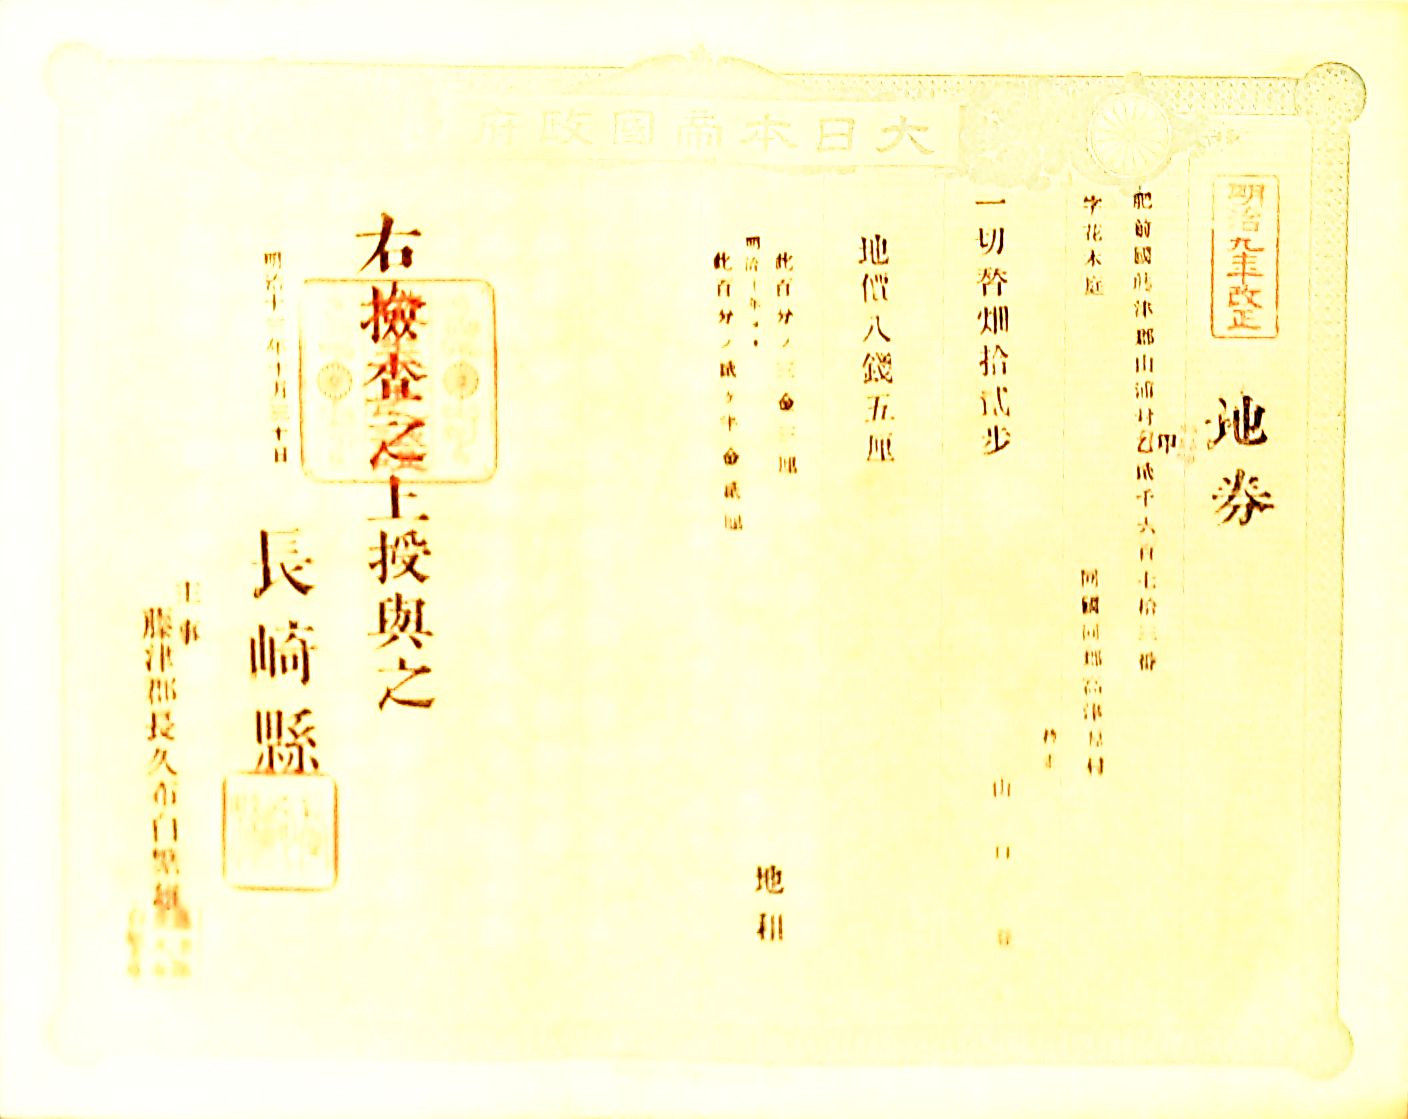 大日本帝國政府
明治九年改正
地券
肥前國藤津郡山浦村乙貳千六百七拾三番
甲
字花木庭
同國同郡高津原村
一切替畑拾貳步
山口
地價八錢五厘
此百分ノ三金三厘
地租
明治十年ヨリ
此百分ノ貳ヶ半金貳厘
右撿査之上授與之
明治十三年十月三十日
長崎縣
主事
藤津郡長久布白